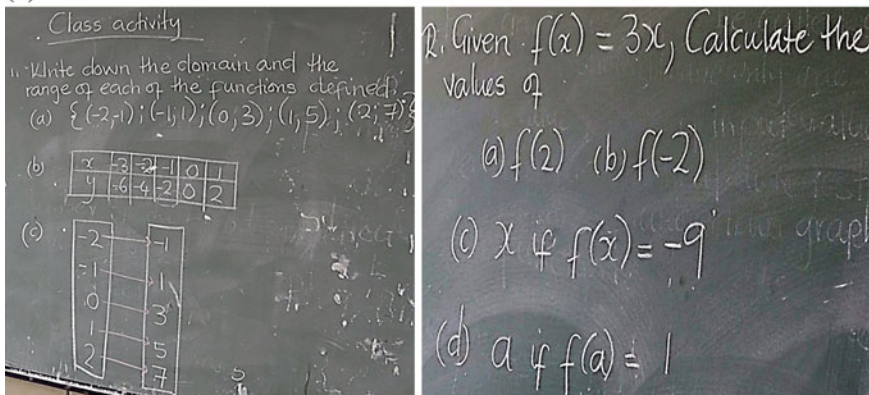 Class activity
1. Write down the domain and the
range of each of the functions defined.
(a) {(-2,-1);(-1;1);(0,3);(1,5);(2;7)}
(b) x -3 -2 -1 0 1
y -6 -4 -2 0 2
(c)
-2 -1
-1 1
0 3
1 5
2 7
2. Given f(x) = 3x, Calculate the
values of
(a) f(2) (b) f(-2)
(c) x if f(x) = -9
(d) a if f(a) = 1